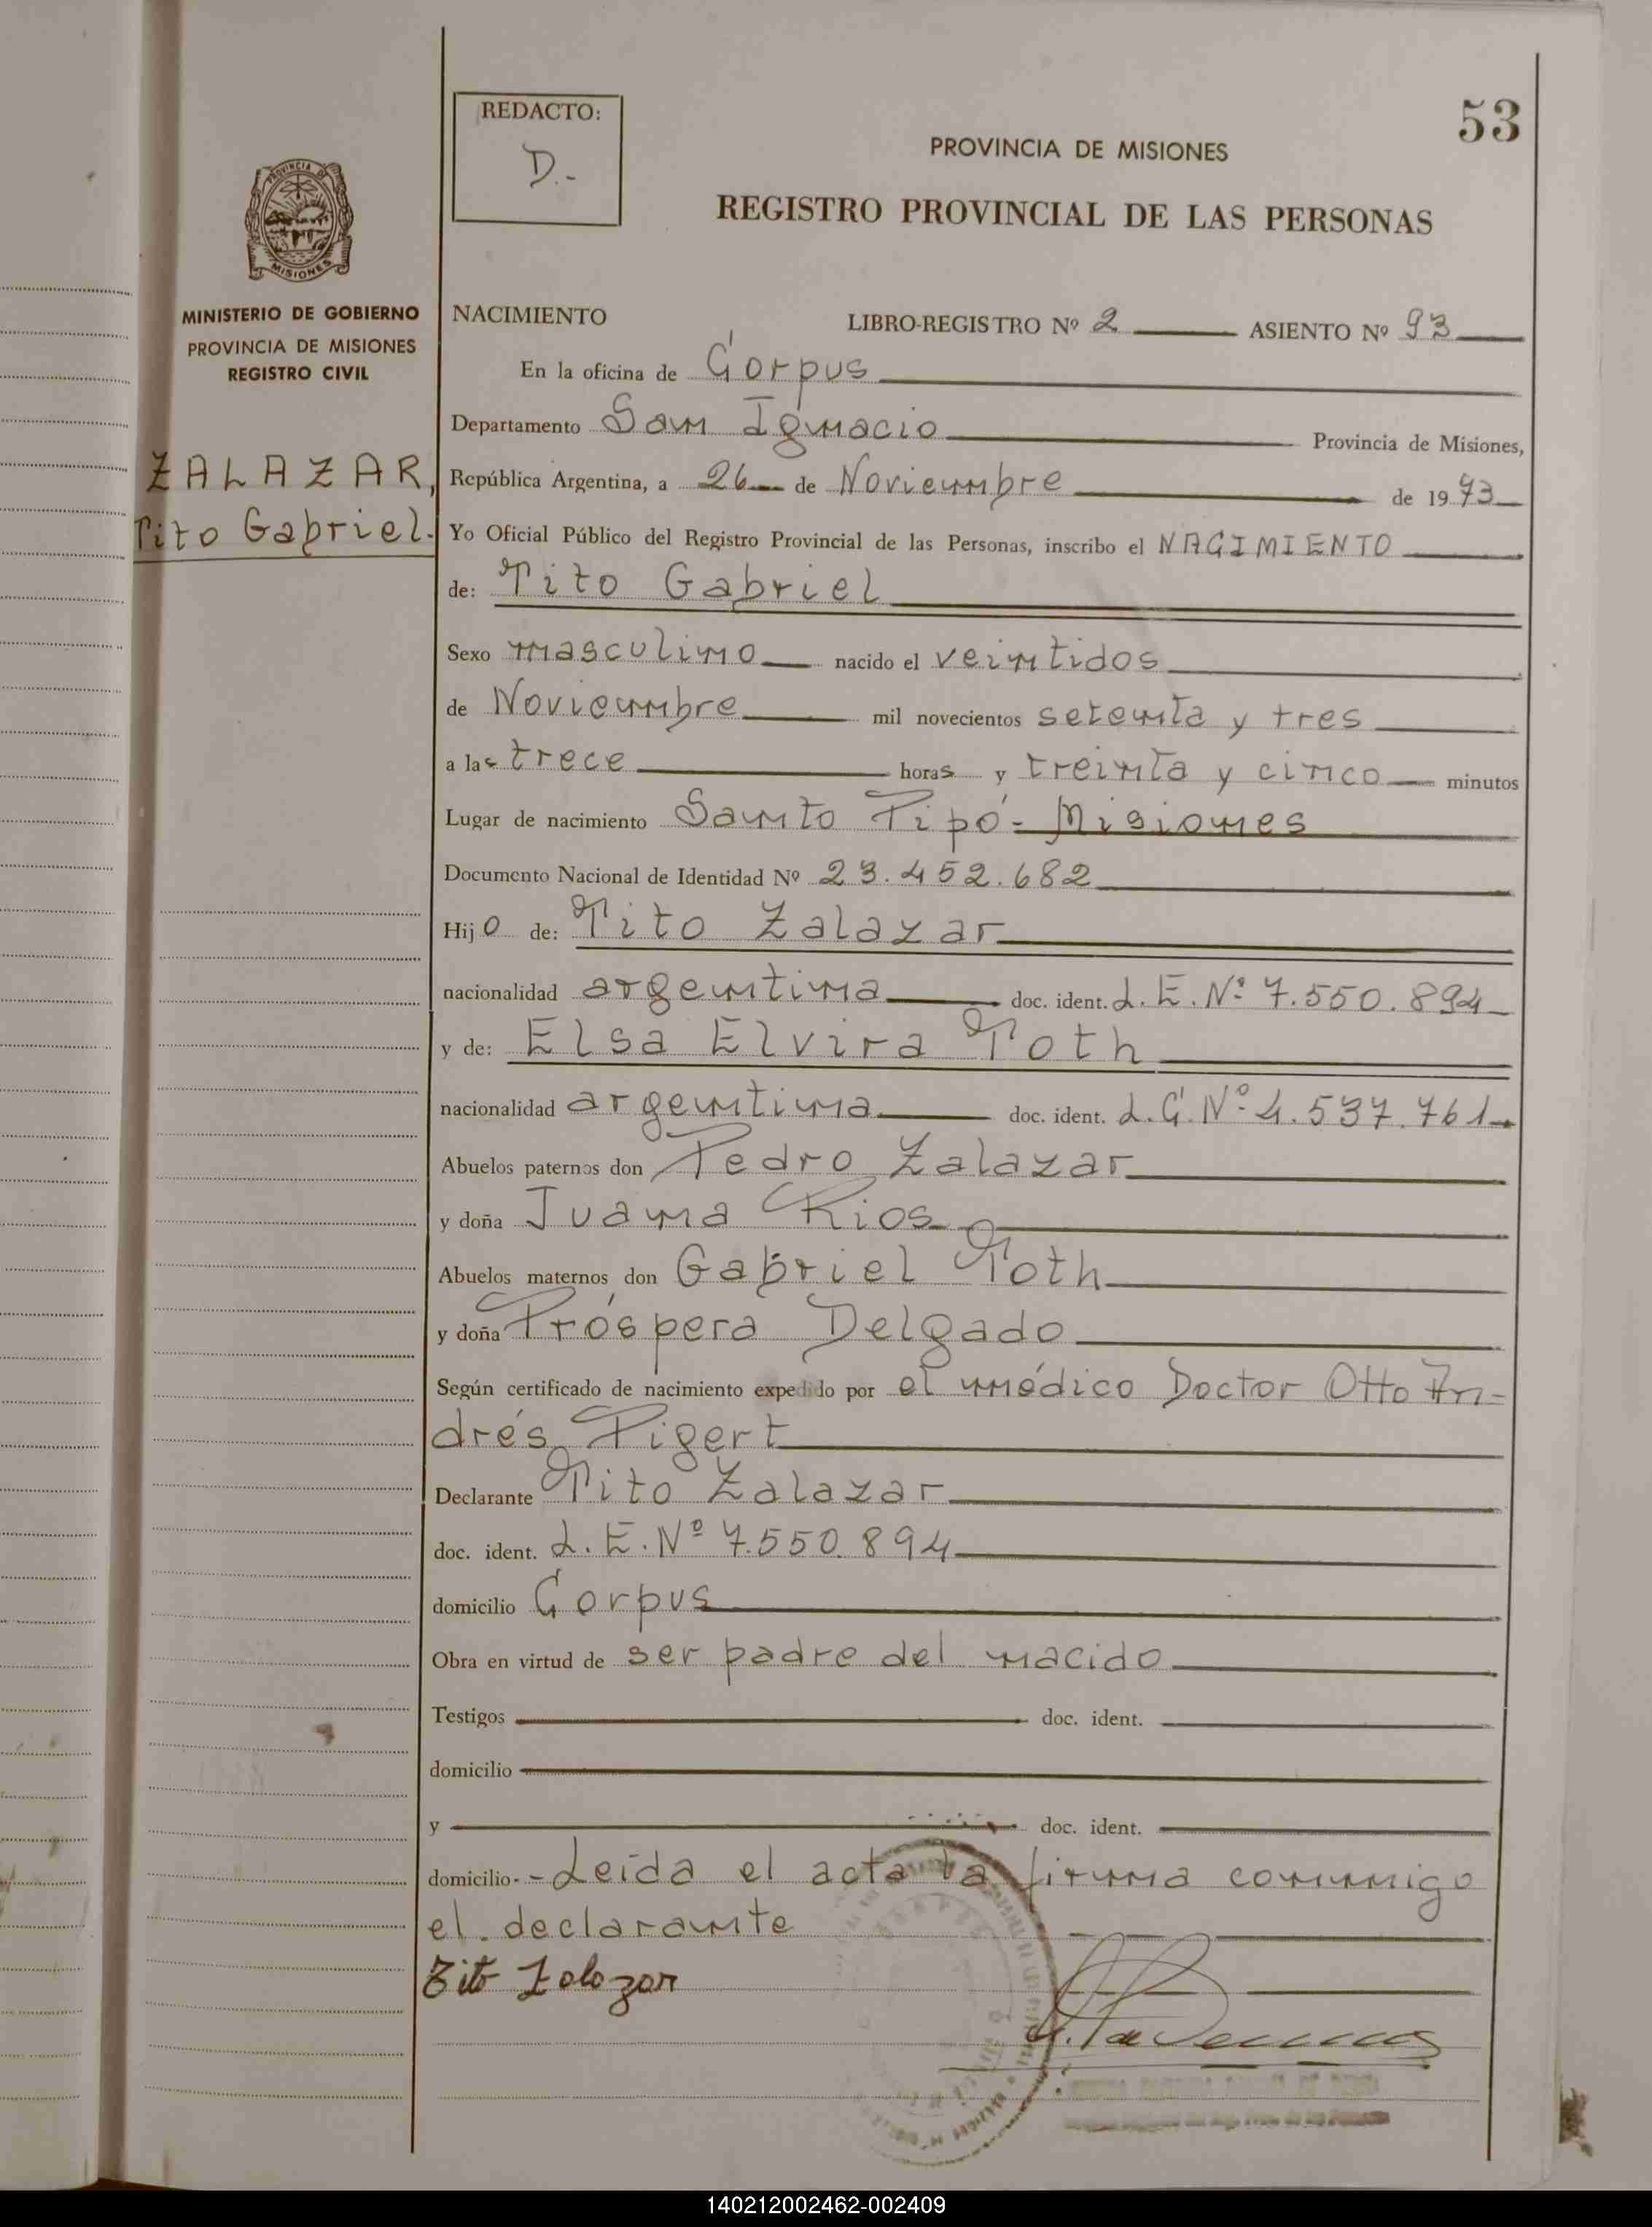 53
REDACTO:
D.-
PROVINCIA DE MISIONES
REGISTRO PROVINCIAL DE LAS PERSONAS
PROVINCIA DE
MISIONES
MINISTERIO DE GOBIERNO
PROVINCIA DE MISIONES
REGISTRO CIVIL
ZALAZAR,
Tito Gabriel.
NACIMIENTO LIBRO-REGISTRO Nº 2 ASIENTO Nº 93
En la oficina de Corpus
Departamento San Ignacio Provincia de Misiones,
República Argentina, a 26 de Noviembre de 1973
Yo Oficial Público del Registro Provincial de las Personas, inscribo el NACIMIENTO
de: Tito Gabriel
Sexo masculino nacido el veintidos
de Noviembre mil novecientos setenta y tres
a las trece horas y treinta y cinco minutos
Lugar de nacimiento Santo Pipó - Misiones
Documento Nacional de Identidad Nº 23.452.682
Hijo de: Tito Zalazar
nacionalidad argentina doc. ident. L.E.Nº 7.550.894
y de: Elsa Elvira Toth
nacionalidad argentina doc. ident. L.C.Nº 4.537.761
Abuelos paternos don Pedro Zalazar
y doña Juana Rios
Abuelos maternos don Gabriel Toth
y doña Próspera Delgado
Según certificado de nacimiento expedido por el médico Doctor Otto An-
drés Pigert
Declarante Tito Zalazar
doc. ident. L.E.Nº 7.550.894
domicilio Corpus
Obra en virtud de ser padre del nacido
Testigos doc. ident.
domicilio
y doc. ident.
domicilio - Leída el acta la firma conmigo
el declarante
Tito Zalazar
140212002462-002409